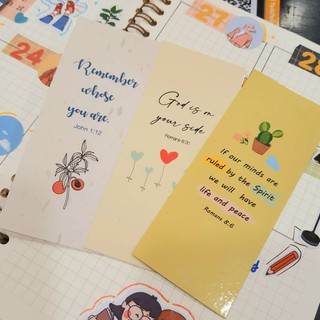 27
24
28
Remember
whose
you are.
John 1:12
God is on
your side.
Romans 8:31
if our minds are
ruled by the Spirit
we will have
life and peace
Romans 8:6